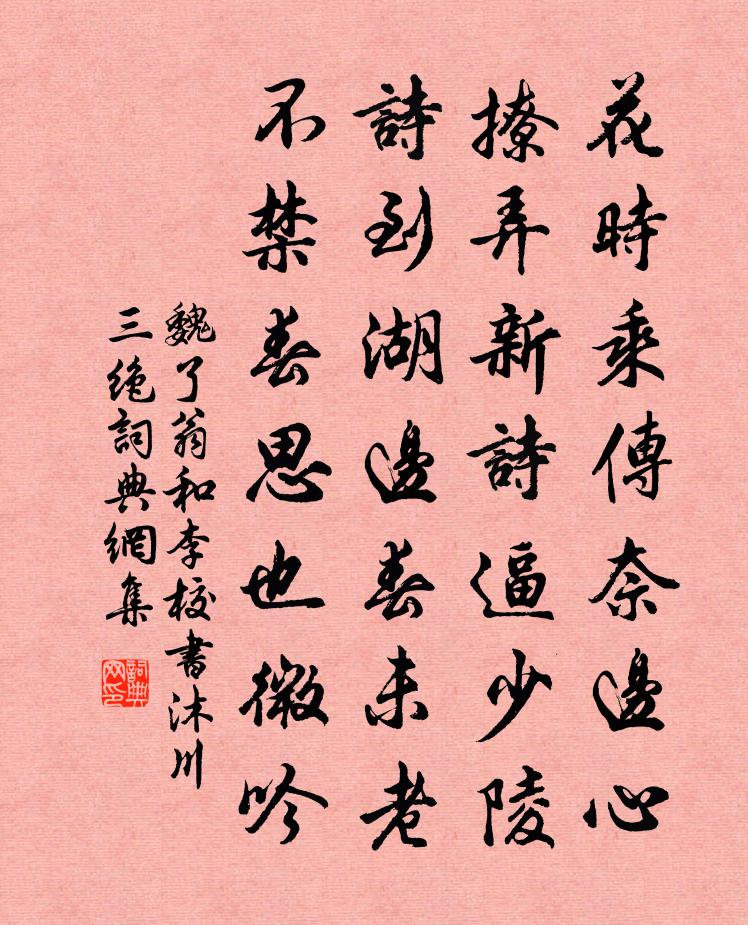 花時乘傳奈邊心
撩弄新詩逼少陵
詩到湖邊春未老
不禁春思也微吟
魏了翁和李校書沐川
三絶詞典網集
詞典網印